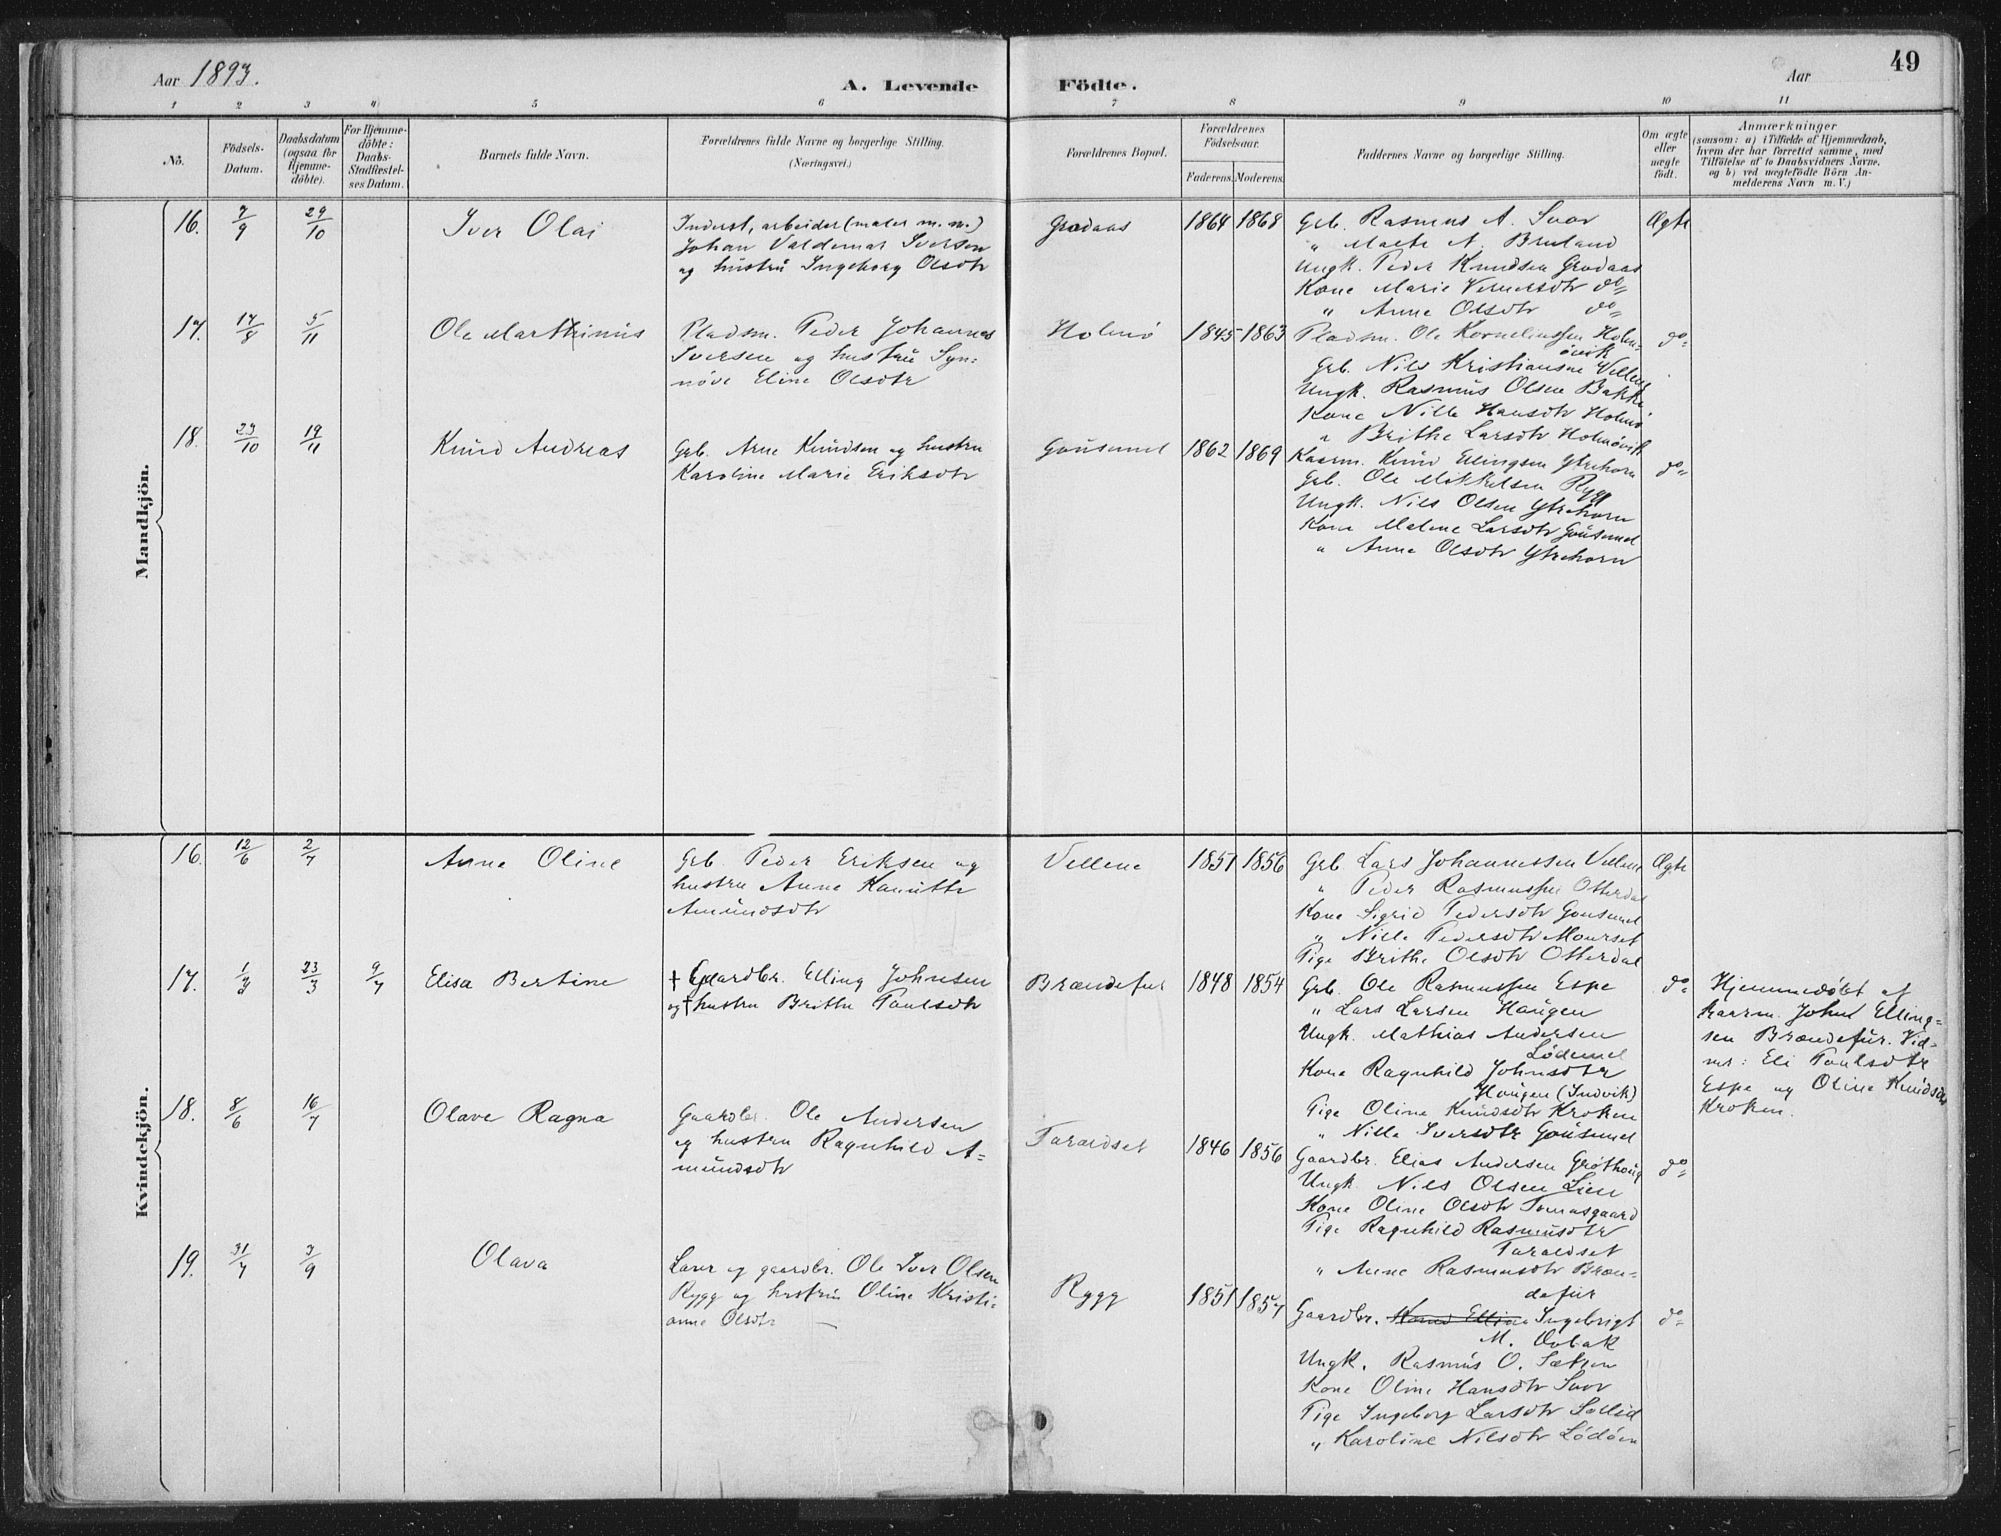 Aar 1893.
A. Levende
Födte.
Aar
49
1 2 3 4 5 6 7 8 9 10 11
No.
Födsels-
Datum.
Daabsdatum
(ogsaa for
Hjemme-
döbte).
For Hjemme-
döbte:
Daabs-
Stadfæstel-
ses Datum.
Barnets fulde Navn.
Forældrenes fulde Navne og borgerlige Stilling.
(Næringsvei.)
Forældrenes Bopæl.
Forældrenes
Födselsaar.
Faderens. Moderens.
Faddernes Navne og borgerlige Stilling.
Om ægte
eller
uægte
födt.
Anmærkninger
(saasom: a) i Tilfælde af Hjemmedaab,
hvem der har forrettet samme, med
Tilföielse af to Daabsvidners Navne,
og b) ved uægtefödte Börn An-
melderens Navn m. V.)
Mandkjön.
16.
7/9
29/10
Iver Olai
Inderst, arbeider (maler m. m.)
Johan Valdemar Iversen
og hustru Ingeborg Olsdtr
Grodaas
1864 1868
Grb. Rasmus A. Svor
" Malte A. Bruland
Ungk. Peder Knudsen Grodaas
Kone Marie Vernersdtr do
" Anne Olsdtr do
Ægte
17.
17/8
5/11
Ole Marthinus
Pladsm. Peder Johannes
Iversen og hustru Syn-
növe Eline Olsdtr
Holmö
1845 1863
Pladsm. Ole Korneliussen Holm-
övik
Grb. Nils Kristiansen Vellene
Ungk. Rasmus Olsen Bakke
Kone Nille Hansdtr Holmö
" Brithe Larsdtr Holmövik
do
18.
23/10
19/11
Knud Andreas
Grb. Arne Knudsen og hustru
Karoline Marie Eriksdtr
Gousemel
1862 1869
Kaarm. Knud Ellingsen Ytrehorn
Grb. Ole Mikkelsen Rygg
Ungk. Nils Olsen Ytrehorn
Kone Malene Larsdtr Gousemel
" Anne Olsdtr Ytrehorn
do
Kvindekjön.
16.
12/6
2/7
Anne Oline
Grb. Peder Eriksen og
hustru Anne Hanutte
Amundsdtr
Vellene
1851 1856
Grb. Lars Johannessen Vellene
" Peder Rasmussen Otterdal
Kone Sigrid Pedersdtr Gousemel
" Nille Pedersdtr Maurset
Pige Brithe Olsdtr Otterdal
Ægte
17.
23/3
9/7
Elisa Bertine
† Gaardbr. Elling Johnsen
og † hustru Brithe Paulsdtr
Brændefur
1848 1854
Grb. Ole Rasmussen Espe
" Lars Larsen Haugen
Ungk. Mathias Andersen
Lödemel
Kone Ragnhild Johnsdtr
Haugen (Indvik)
Pige Oline Knudsdtr Kroken
" Nille Iversdtr Gousemel
do
Hjemmedöbt af
kaarm. John Elling-
sen Brændefur. Vid-
ner: Eli Paulsdtr
Espe og Oline Knudsdtr
Kroken.
18.
8/6
16/7
Olave Ragna
Gaardbr. Ole Andersen
og hustru Ragnhild A-
mundsdtr
Taraldset
1846 1856
Gaardbr. Elias Andersen Gröthaug
Ungk. Nils Olsen Lien
Kone Oline Olsdtr Tomasgaard
Pige Ragnhild Rasmusdtr
Taraldset
" Anne Rasmusdtr Bræn-
defur
do
19.
31/7
3/9
Olava
Lærer og gaardbr. Ole Iver Olsen
Rygg og hustru Oline Kristi-
anne Olsdtr
Rygg
1851 1857
Gaardbr. Knud Elling Ingebrigt
M.
Ungk. Rasmus O. Sætren
Kone Oline Hansdtr Svor
Pige Ingeborg Larsdtr Sollid
" Karoline Nilsdtr Lödöen
do